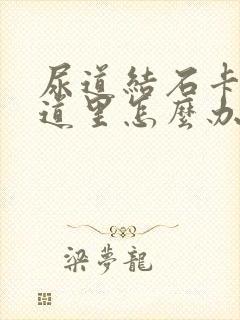 尿道結石卡
道里怎麼办
梁夢龍